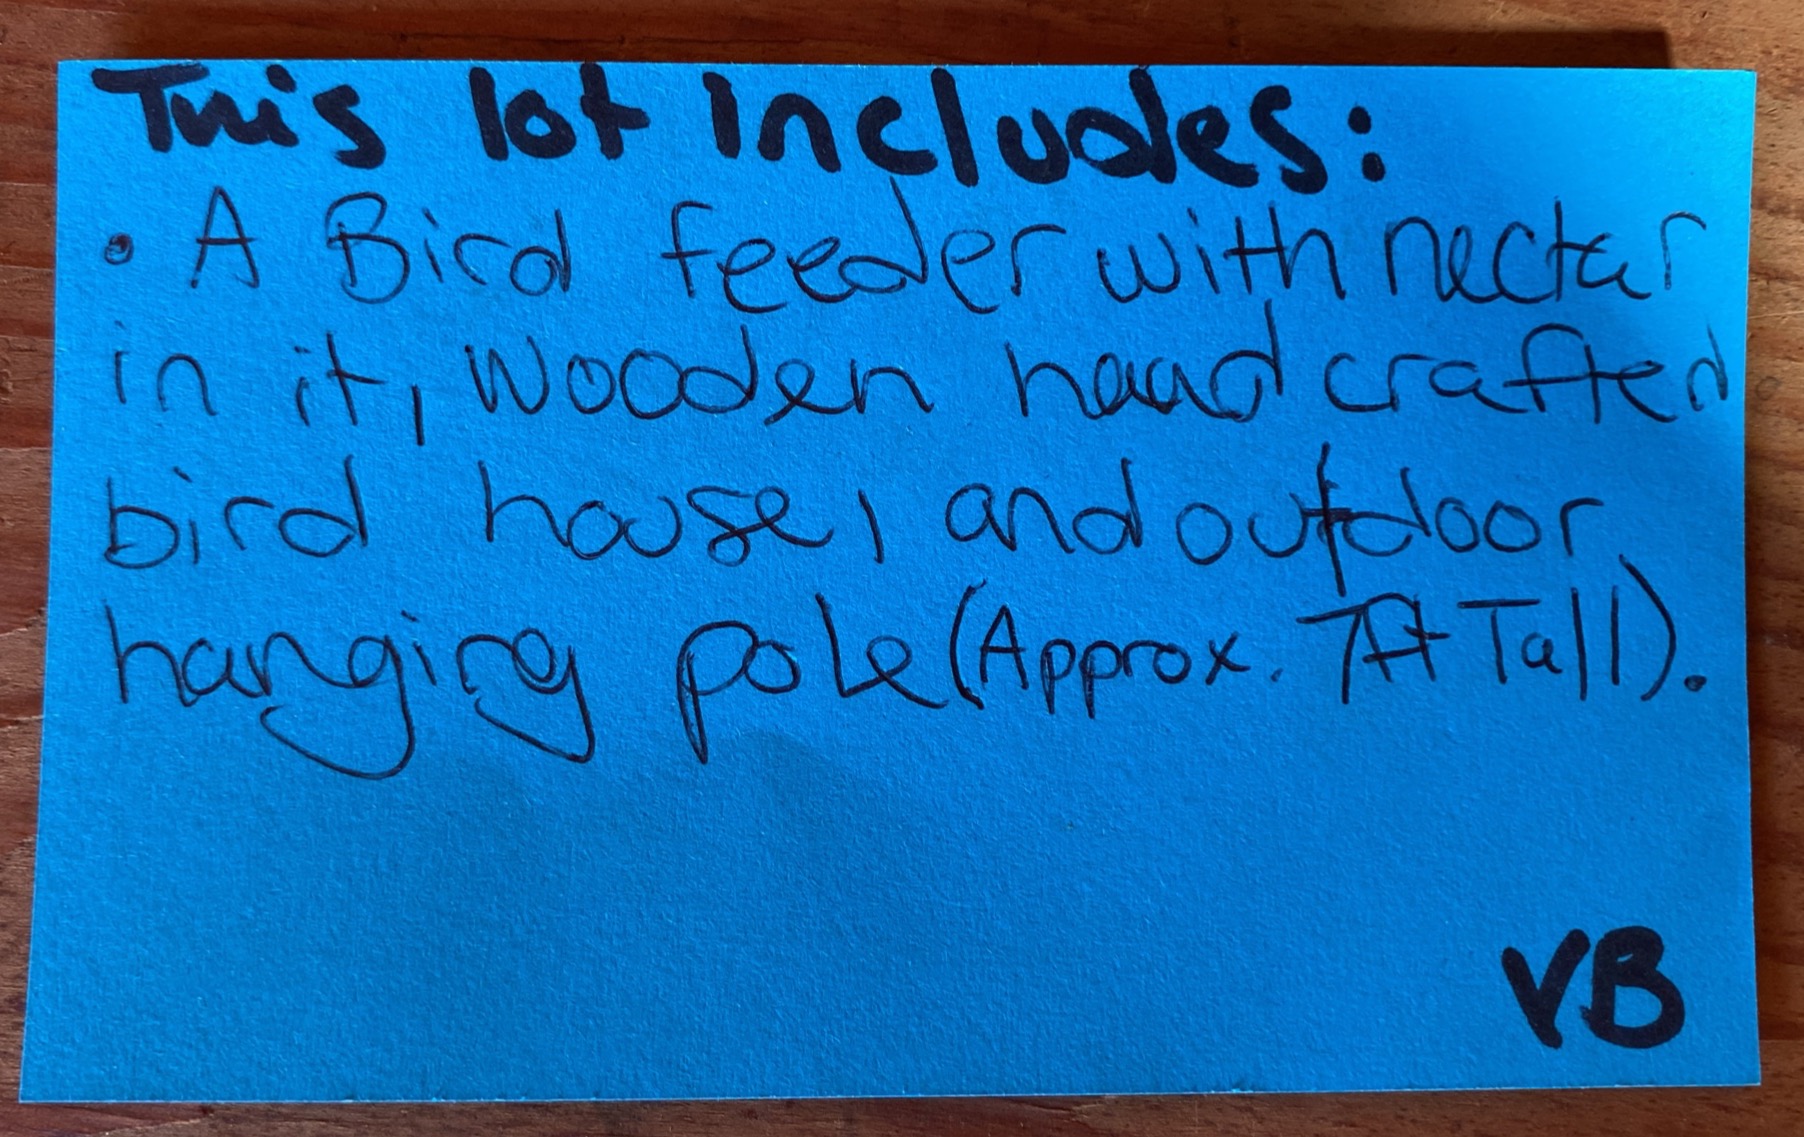 This lot includes:
• A Bird feeder with nectar
in it, wooden hand crafted
bird house, and outdoor
hanging pole (Approx. 7ft Tall).
VB